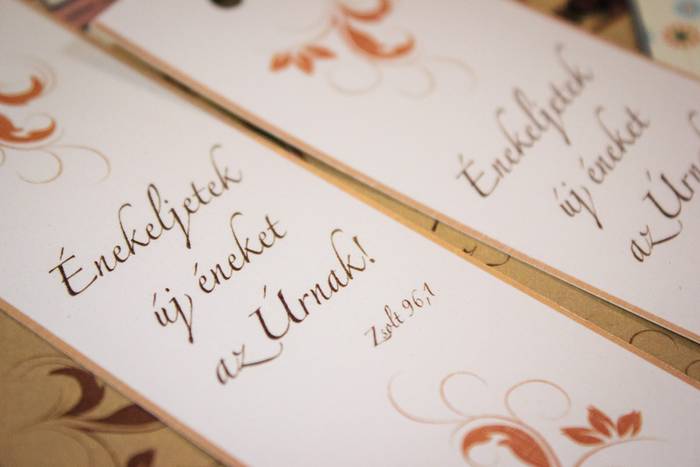 Énekeljetek
új éneket
az Úrnak!
Zsolt 96,1
Énekeljetek
új éneket
az